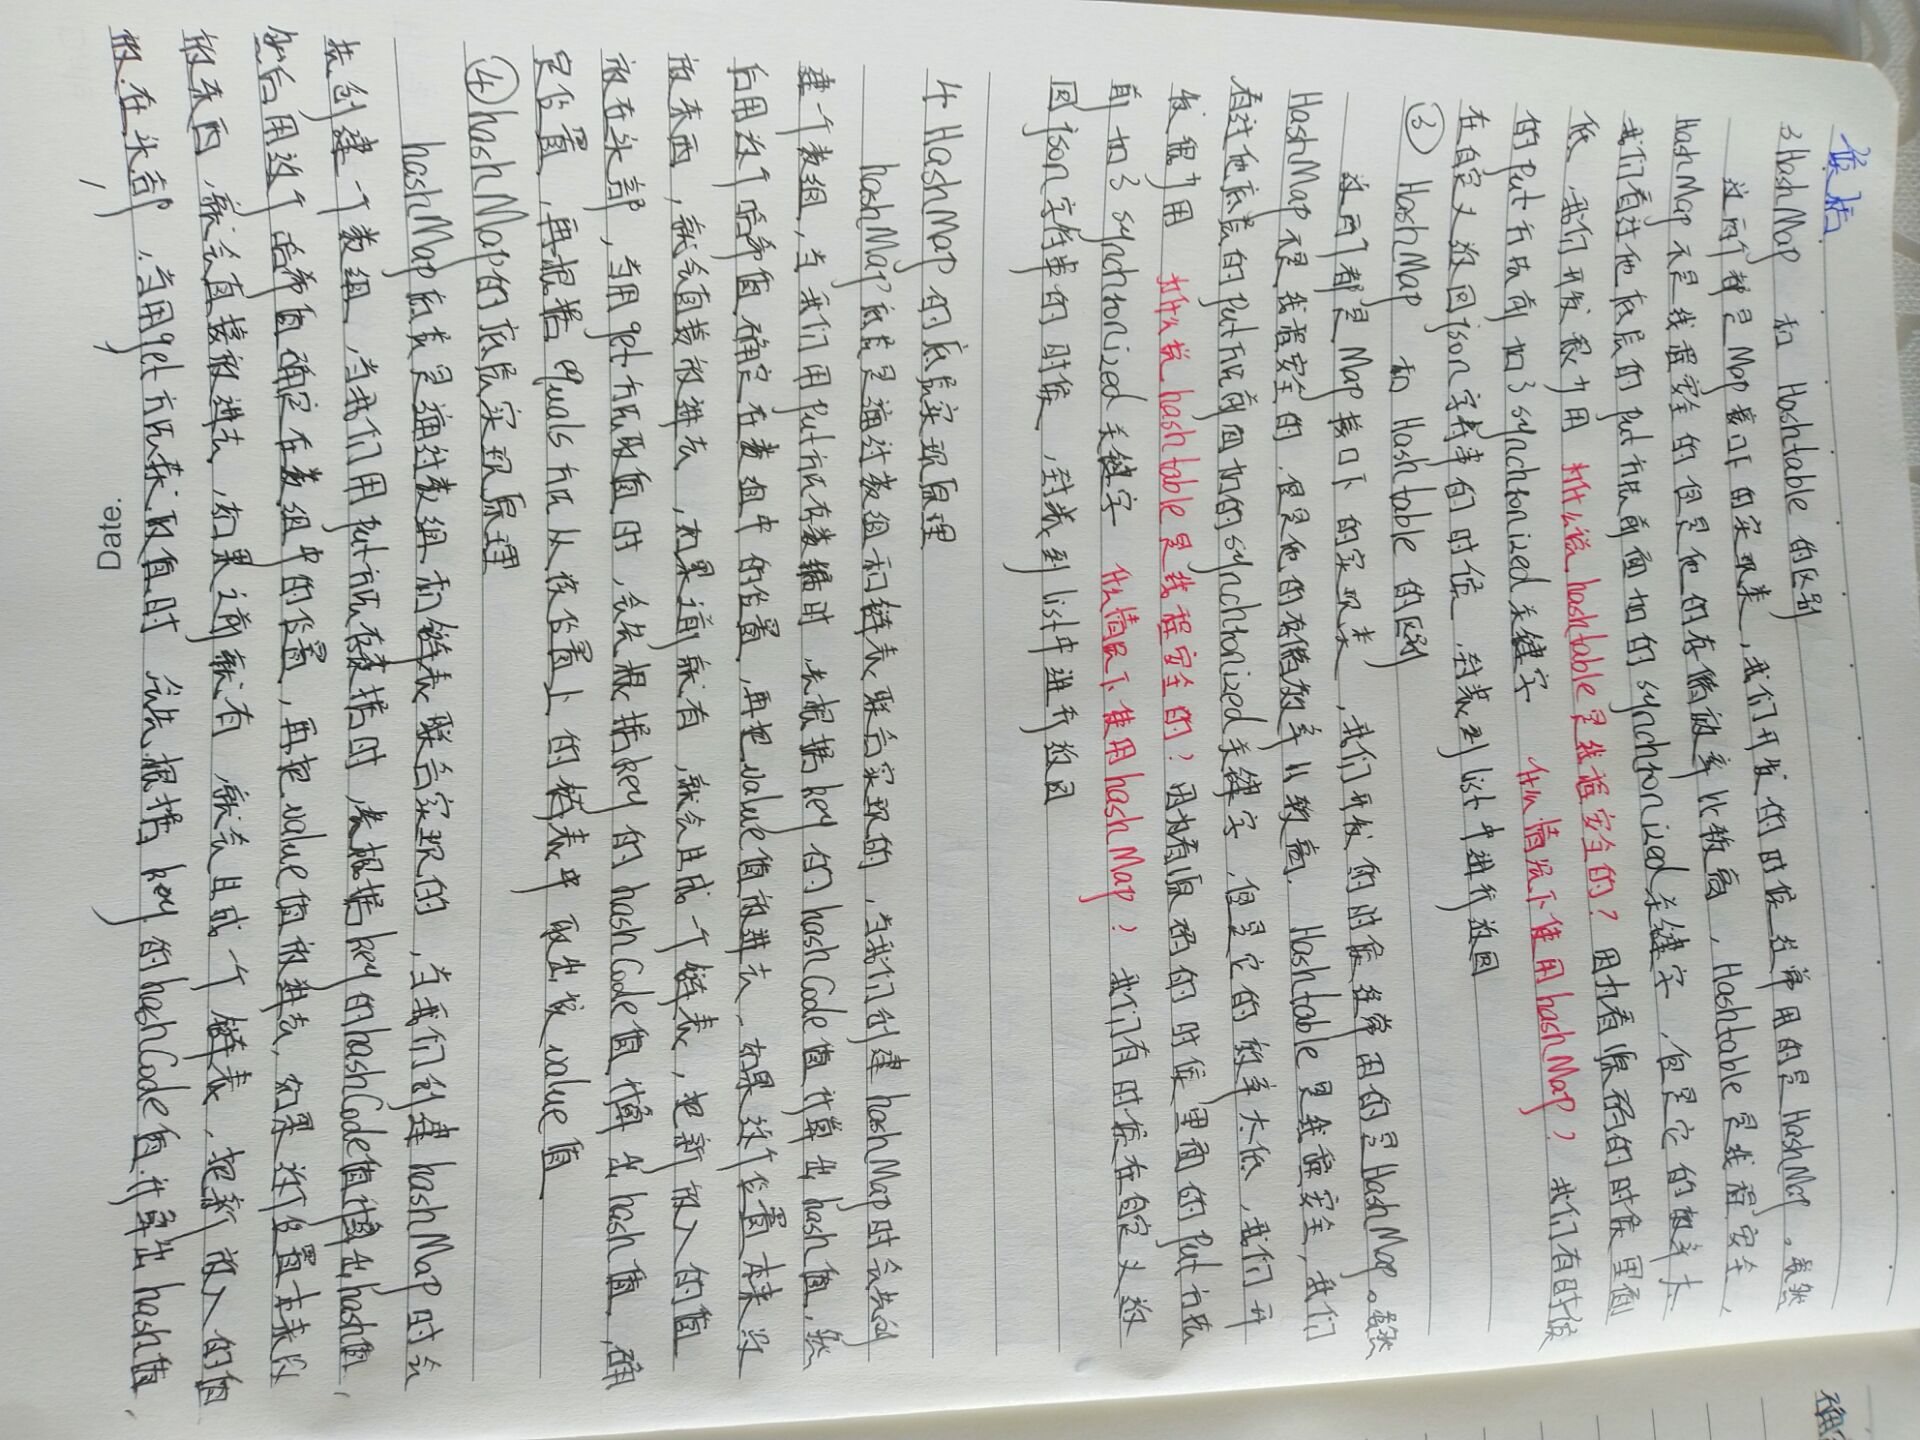 3 HashMap 和 Hashtable 的区别
这两个都是 Map 接口下的实现类，我们开发的时候经常用的是 HashMap。虽然
HashMap 不是线程安全的但是他的存储效率比较高，Hashtable 是线程安全，
我们看过他底层的 put 方法前面加的 synchronized 关键字，但是它的效率太
低，我们开发很少用 为什么说 hashtable 是线程安全的？因为看源码的时候里面
的 put 方法前加了 synchronized 关键字 什么情况下使用 hashMap？我们有时候
在自定义放回 json 字符串的时候，封装到 list 中进行放回
③ HashMap 和 Hashtable 的区别
这两个都是 Map 接口下的实现类，我们开发的时候经常用的是 HashMap。虽然
HashMap 不是线程安全的，但是他的存储效率比较高，Hashtable 是线程安全，我们
看过他底层的 put 方法前面加的 synchronized 关键字，但是它的效率太低，我们开
发很少用 为什么说 hashtable 是线程安全的？因为看源码的时候里面的 put 方法
前加了 synchronized 关键字 什么情况下使用 hashMap？我们有时候在自定义放
回 json 字符串的时候，封装到 list 中进行放回
4 HashMap 的底层实现原理
hashMap 底层是通过数组和链表联合实现的，当我们创建 hashMap 时会先创
建一个数组，当我们用 put 方法存数据时，先根据 key 的 hashCode 值计算出 hash 值，然
后用这个哈希值确定在数组中的位置，再把 value 值放进去，如果这个位置本来没
放东西，就会直接放进去，如果之前就有，就会生成一个链表，把新放入的值
放在头部，当用 get 方法取值时，会先根据 key 的 hashCode 值计算出 hash 值，确
定位置，再根据 equals 方法从该位置上的链表中取出该 value 值
④ hashMap 的底层实现原理
hashMap 底层是通过数组和链表联合实现的，当我们创建 hashMap 时会
先创建一个数组，当我们用 put 方法存数据时，先根据 key 的 hashCode 值计算出 hash 值，
然后用这个哈希值确定在数组中的位置，再把 value 值放进去，如果这个位置本来没
放东西，就会直接放进去，如果之前就有，就会生成一个链表，把新放入的值
放在头部，当用 get 方法来取值时，会先根据 key 的 hashCode 值计算出 hash 值，
Date.